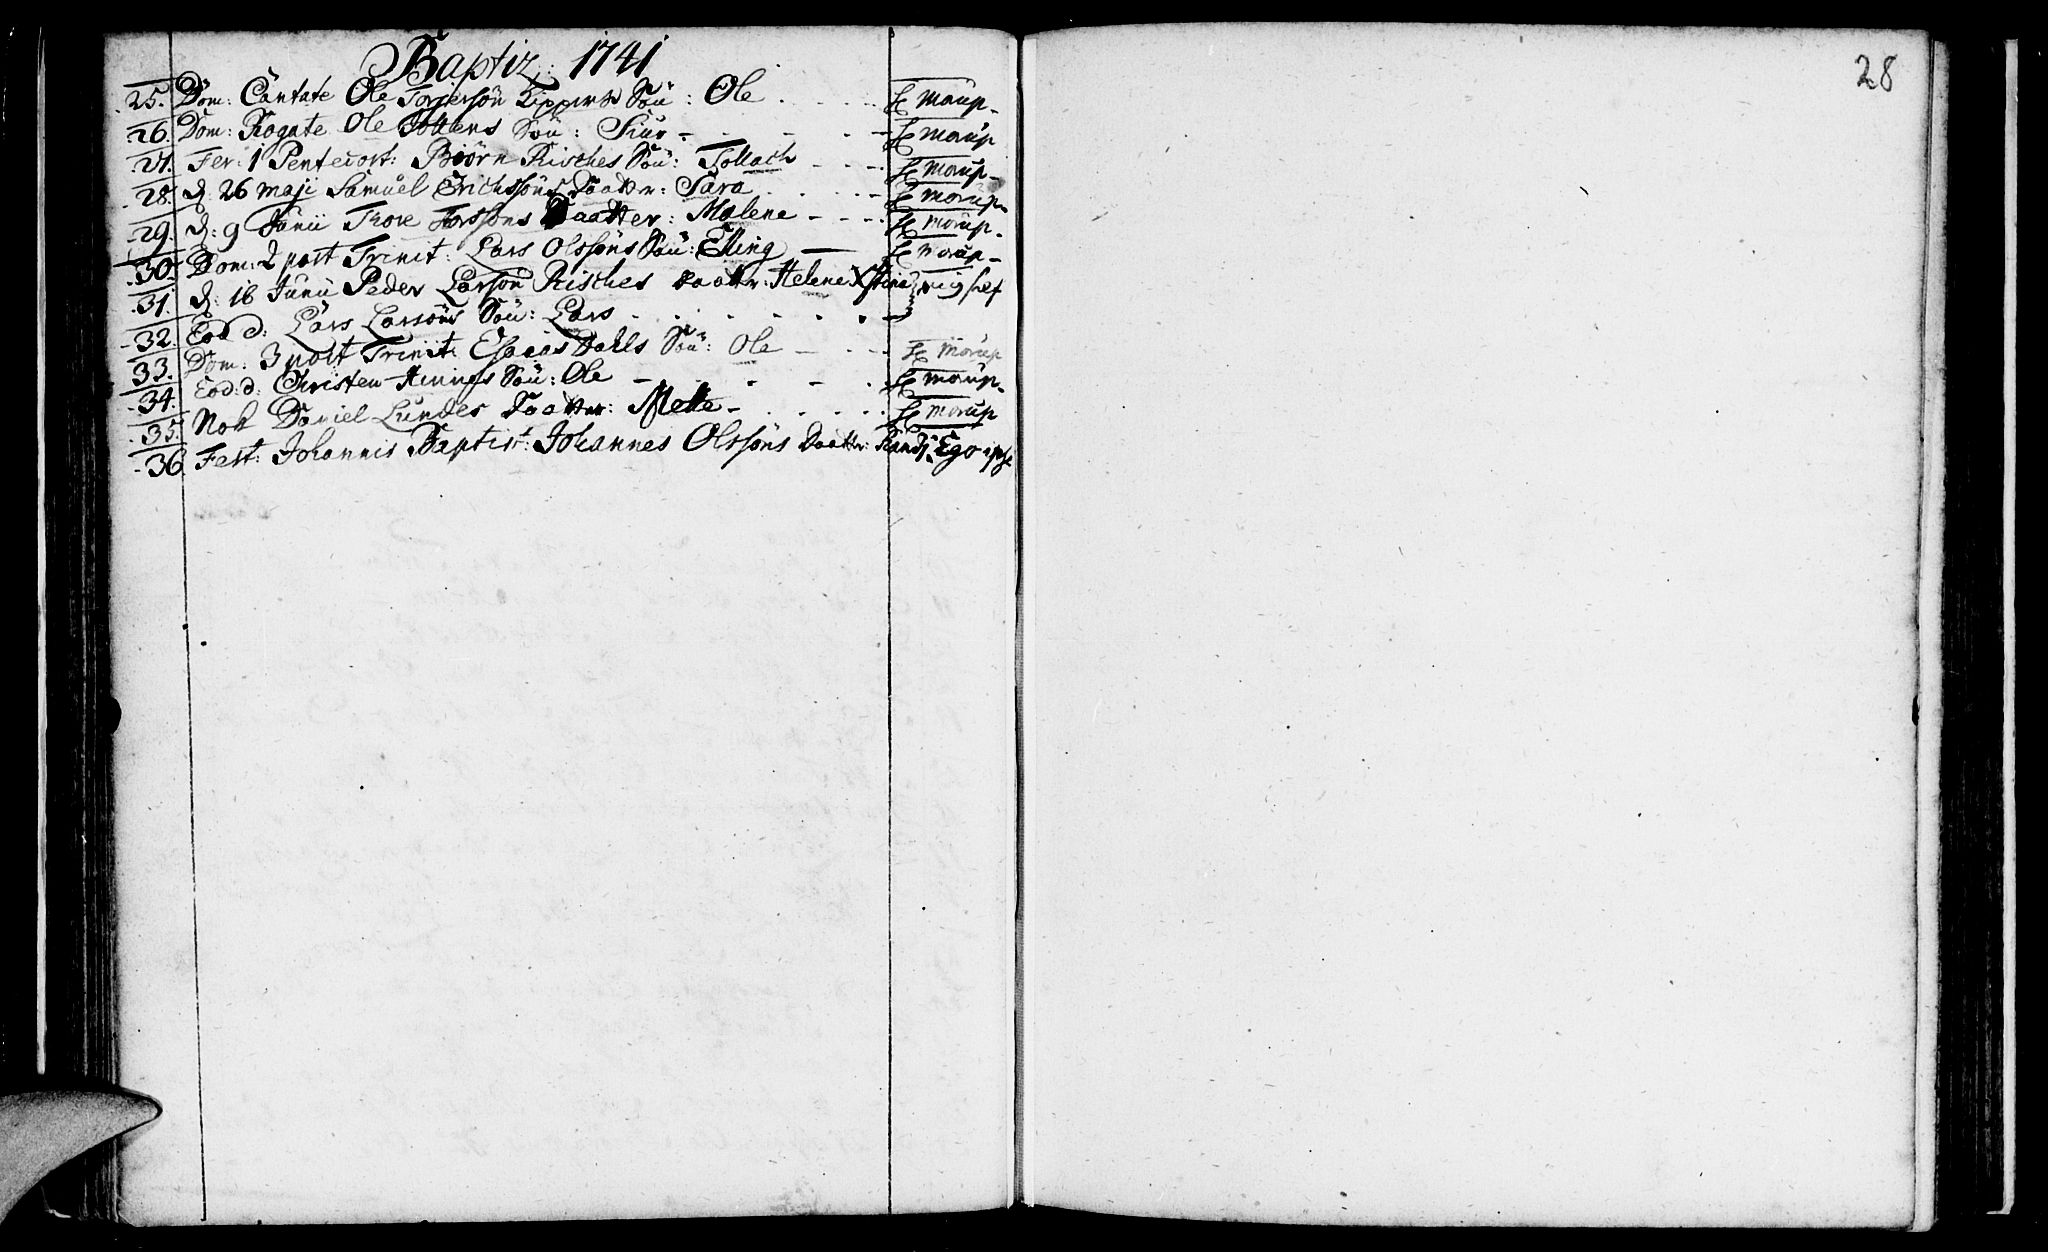 Baptiz: 1741
25. Dom: Cantate Ole Torgersön Söü: Ole . . . . . H Morup-
26. Dom: Rogate Ole Söü: Siur - . . . . - H Morup
27. Fer: 1 Pentecost: Biörn Risches Söü: Tollach - . . . H Morup-
28. d. 26 Maji Samuel Erichssöns Daatter: Sara . . . . - H Morup-
29. d: 9 Junii Thore Daatter: Malene - . . . H Morup-
30. Dom: 2 post Trinit: Lars Olssöns Söü: Elling — H Morup-
31. d: 16 Junii Peder Larson Risches Daattr: Helene Xstine } mig self
32. Eod d: Lars Larsöns Söü: Lars . . . . . . -
33. Dom: 3 post Trinit: Esaias Dahls Söü: Ole - . . . H Morup
34. Eod: d: Christen Söü: Ole - - . - . H Morup-
35. Nok Daniel Lundes Daatter: Mette - . . . . . H Morup
36 Fest: Johannis Baptist: Johannes Olssöns Daattr: Randj: Ego ipse
28